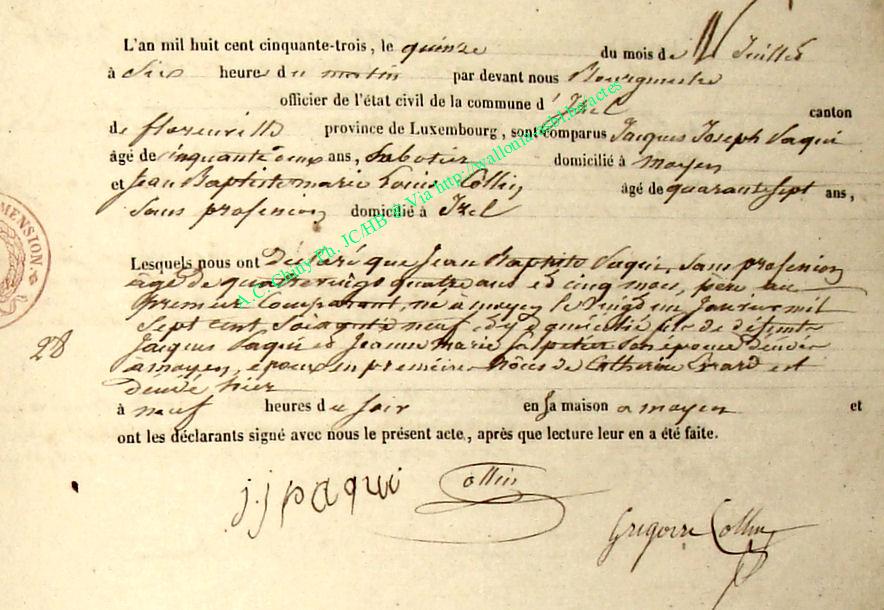 L'an mil huit cent cinquante-trois, le quinze du mois de Juillet
à six heures du matin par devant nous Bourgmestre
officier de l'état civil de la commune d'Izel canton
de florenville province de Luxembourg, sont comparus Jacques Joseph Paqui
âgé de cinquante deux ans, Sabotier domicilié à moyen
et Jean Baptiste marie Louis Collin âgé de quarante sept ans,
Sans profession domicilié à Izel
Lesquels nous ont Déclaré que Jean Baptiste Paqui, Sans profession
âgé de quatre vingt quatre ans et cinq mois, père au
premier Comparant, né à moyen le vingt un Janvier mil
Sept cent Soixante neuf et y domicilié fils de défunts
Jacques Paqui et Jeanne marie son épouse décédés
à moyen, époux en premières nôces de Catherine Evrard est
décédé hier
à neuf heures du soir en sa maison a moyen et
ont les déclarants signé avec nous le présent acte, après que lecture leur en a été faite.
28
j.j paqui Collin
Grégoire Collin
MENSION
A.C. Chiny Ph. JC/HB @ Via http://wallonia.cgbl.be/actes